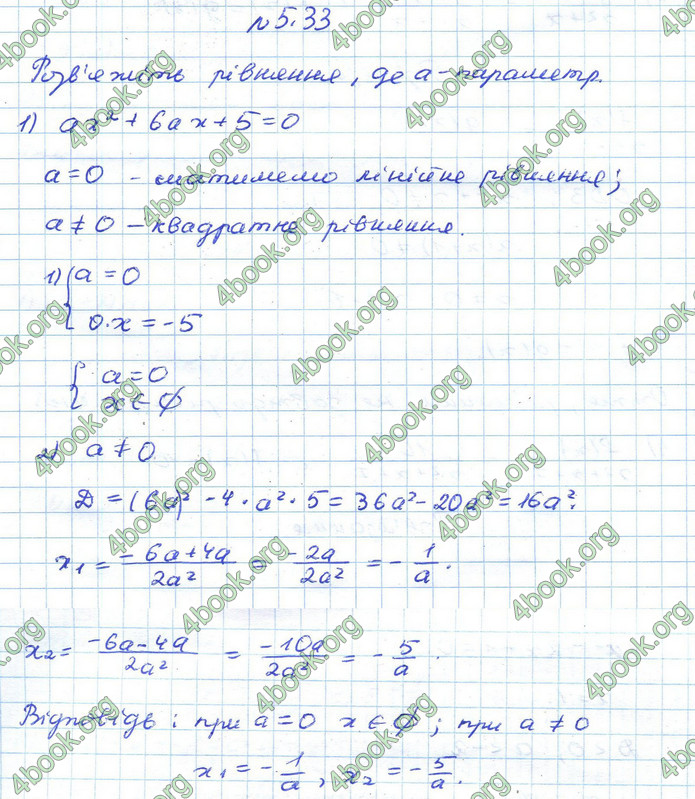 № 5.33
Розв'яжіть рівняння, де a – параметр.
1) ax² + 6ax + 5 = 0
a = 0 – матимемо лінійне рівняння;
a ≠ 0 – квадратне рівняння.
1) { a = 0
0·x = –5
{ a = 0
x ∈ ∅
2) a ≠ 0
D = (6a)² – 4·a²·5 = 36a² – 20a² = 16a².
x₁ = (–6a + 4a)/2a² = –2a/2a² = –1/a.
x₂ = (–6a – 4a)/2a² = –10a/2a² = –5/a.
Відповідь: при a = 0 x ∈ ∅; при a ≠ 0
x₁ = –1/a, x₂ = –5/a.
4book.org